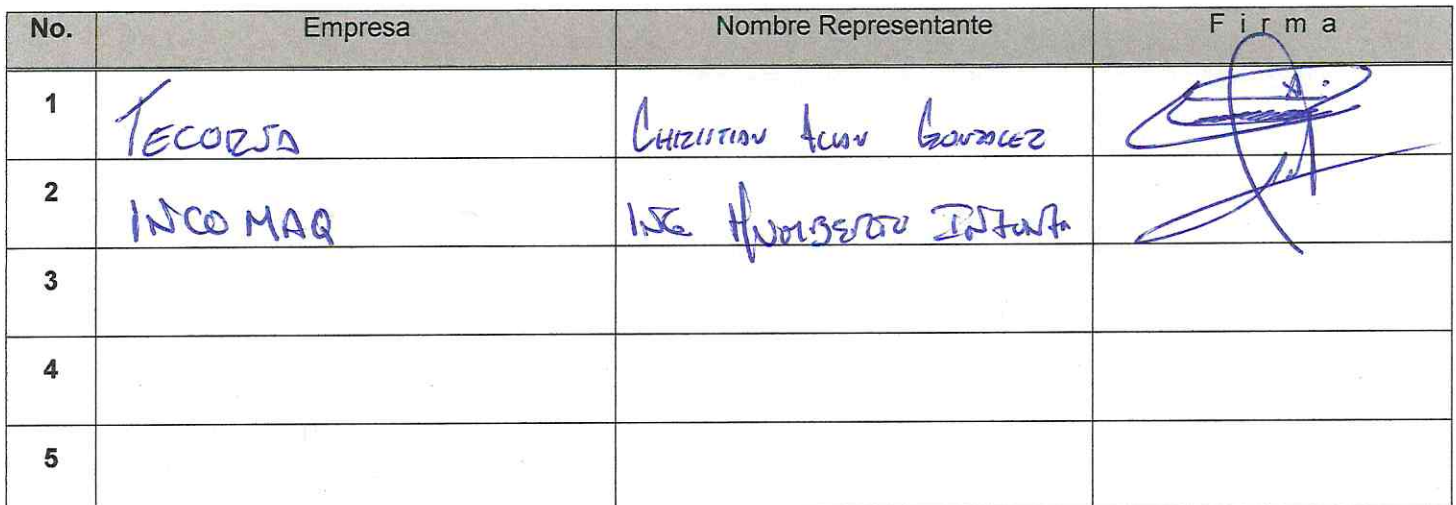 No. Empresa Nombre Representante Firma
1 TECORSA CHRISTIAN ALAN GONZALEZ
2 INCOMAQ ING
3
4
5